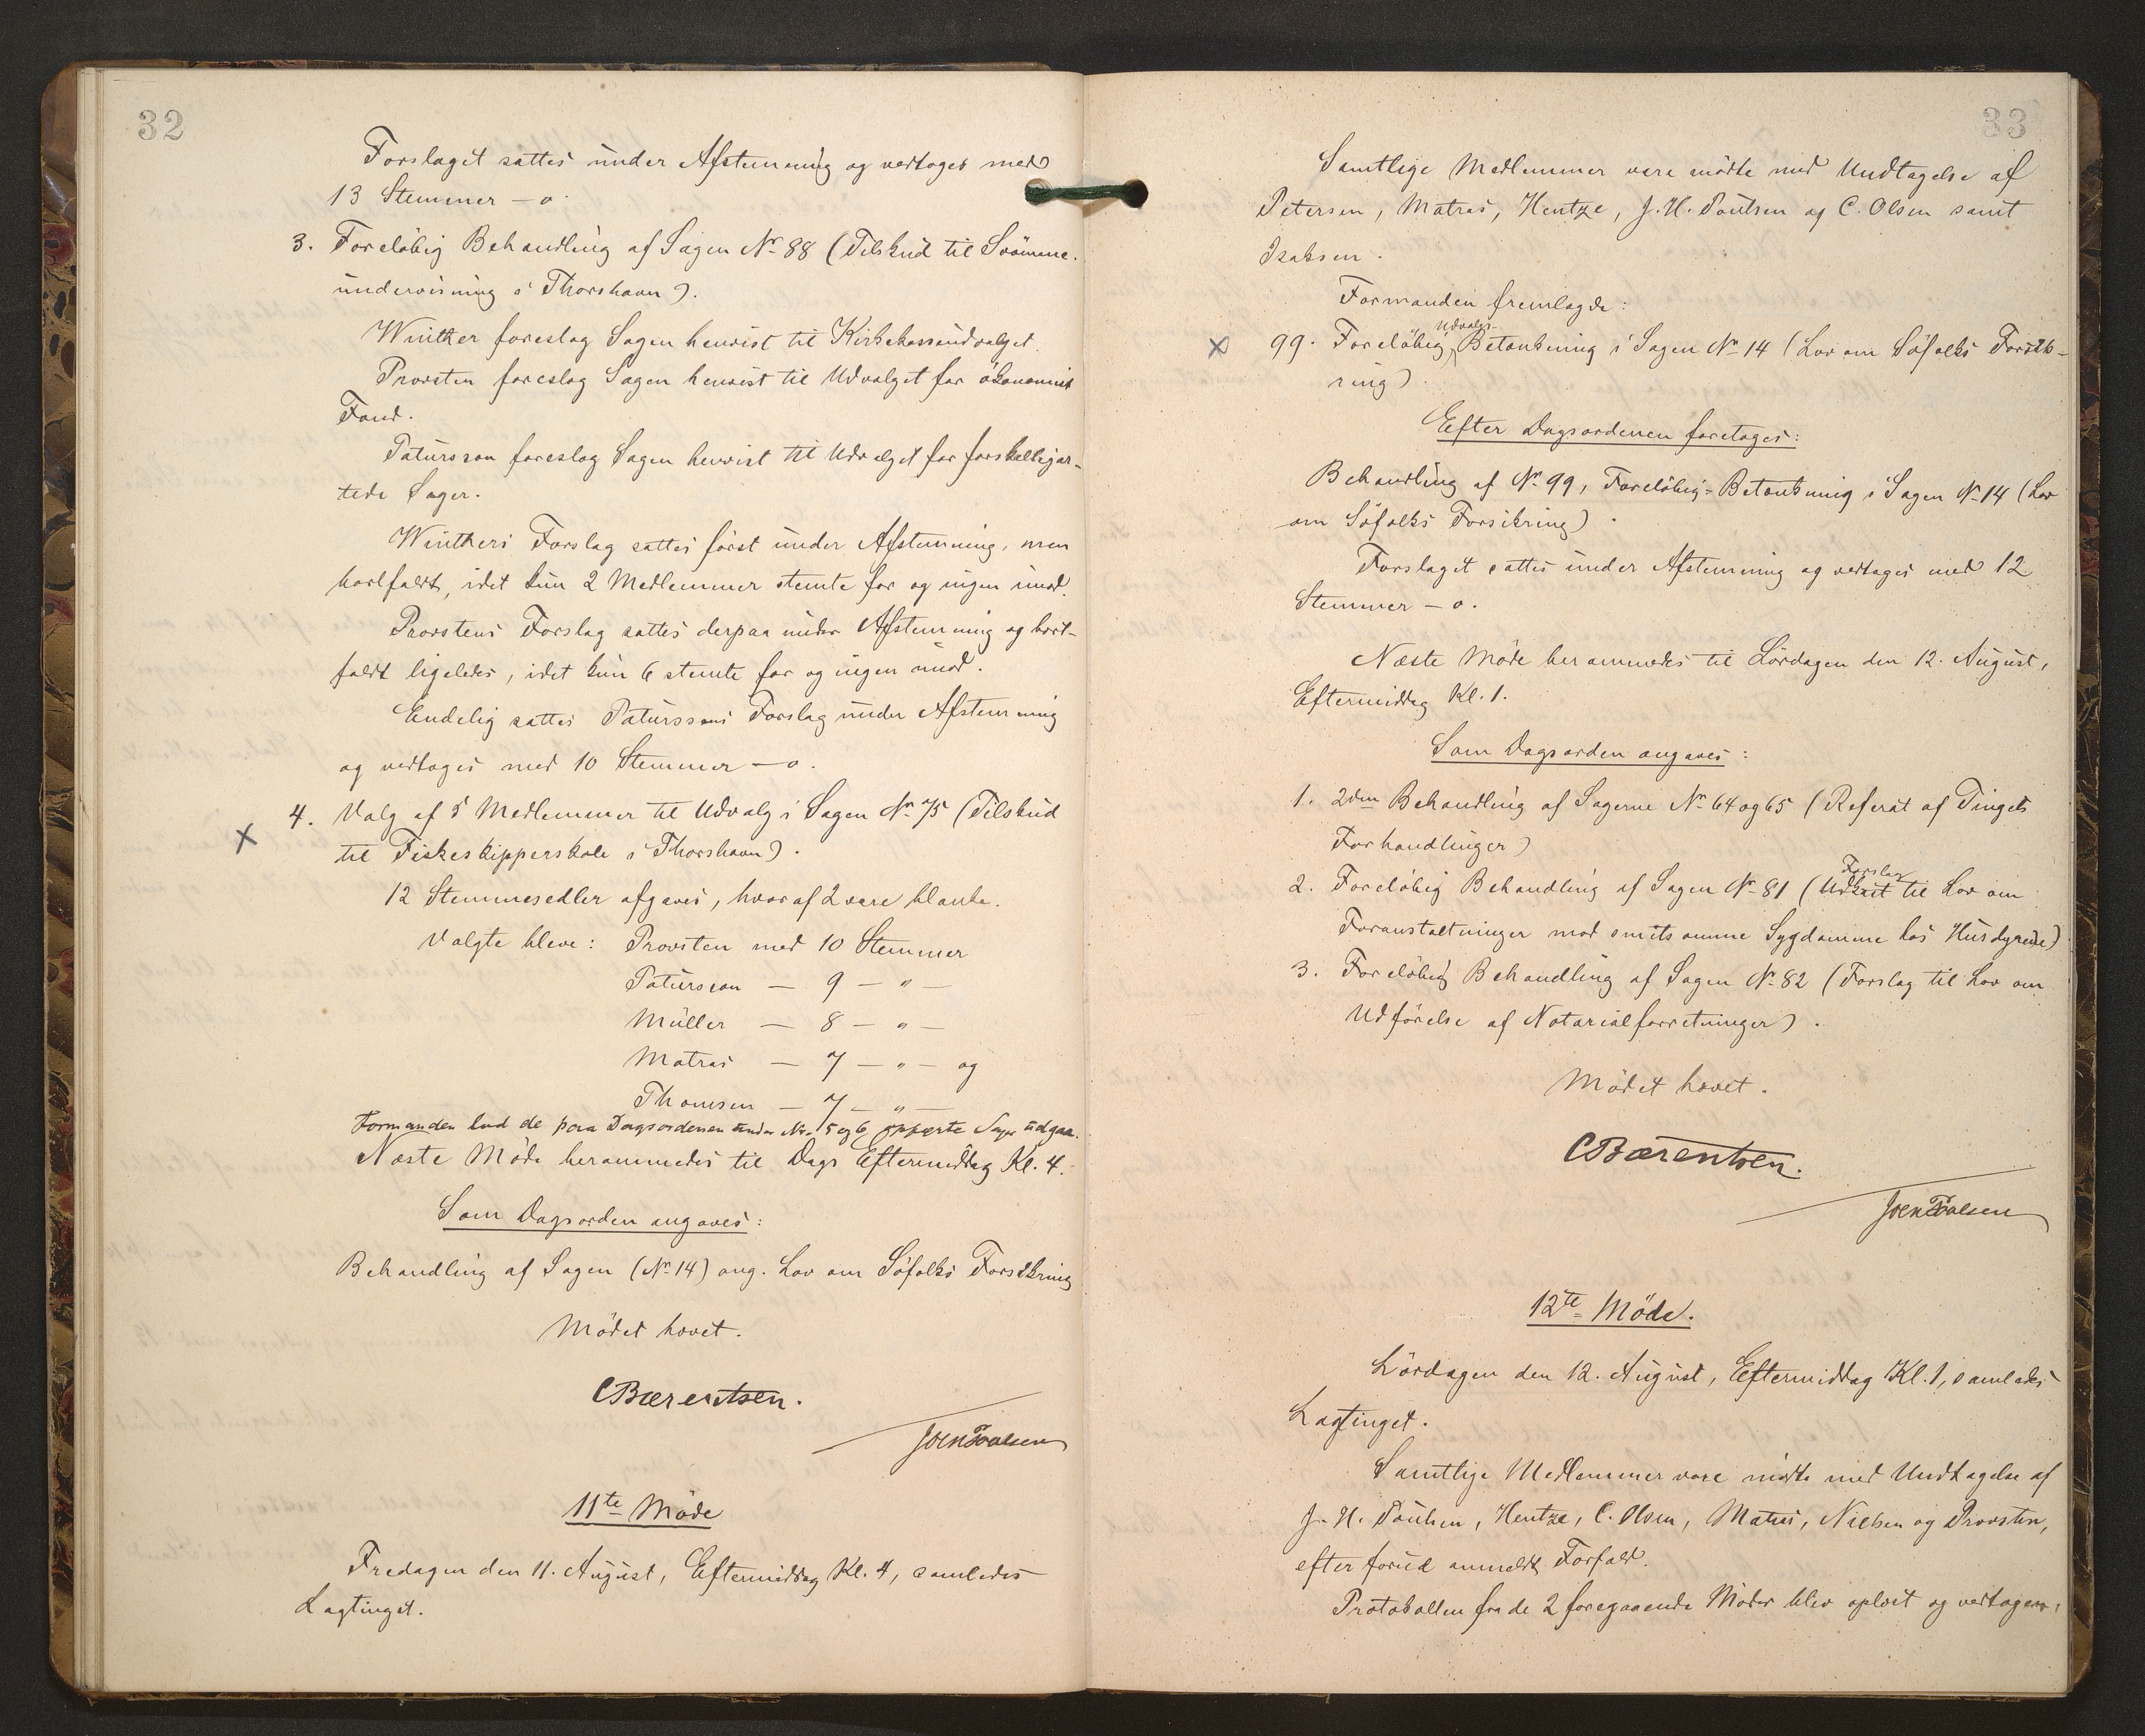 32
Forslaget sattes under Afstemning og vedtoges med
13 Stemmer – 0.
3. Foreløbig Behandling af Sagen No 88 (Tilskud til Svömme-
undervisning i Thorshavn).
Winther foreslog Sagen henvist til Kirkekasseudvalget.
Provsten foreslog Sagen henvist til Udvalget for ökonomisk
Fond.
Patursson foreslog Sagen henvist til Udvalget for forskelligar-
tede Sager.
Winthers Forslag sattes först under Afstemning, men
bortfaldt, idet kun 2 Medlemmer stemte for og ingen imod.
Provstens Forslag sattes derpaa under Afstemning og bort-
faldt ligeledes, idet kun 6 stemte for og ingen imod.
Endelig sattes Paturssons Forslag under Afstemning
og vedtoges med 10 Stemmer – 0.
x 4. Valg af 5 Medlemmer til Udvalg i Sagen No 75 (Tilskud
til Fiskeskipperskole i Thorshavn).
12 Stemmesedler afgaves, hvoraf 2 vare blanke.
Valgte bleve: Provsten med 10 Stemmer
Patursson — 9 — " —
Müller — 8 — " —
Matras — 7 — " — og
Thomsen — 7 — " —
Formanden lod de paa Dagsordenen under No 5 og 6 opførte Sager udgaa.
Næste Möde berammedes til Dags Eftermiddag Kl. 4.
Som Dagsorden angaves:
Behandling af Sagen (No 14) ang. Lov om Söfolks Forsikring
Mödet hævet.
CBærentsen.
Joen Poulsen
11te Möde
Fredagen den 11. August, Eftermiddag Kl. 4, samledes
Lagtinget.
33
Samtlige Medlemmer vare mödte med Undtagelse af
Petersen, Matras, Hentze, J. H. Poulsen og C. Olsen samt
Isaksen.
Formanden fremlagde:
x 99. Foreløbig Udvalgs-Betænkning i Sagen No 14 (Lov om Söfolks Forsik-
ring)
Efter Dagsordenen foretoges:
Behandling af No 99, Foreløbig Betænkning i Sagen No 14 (Lov
om Söfolks Forsikring).
Forslaget sattes under Afstemning og vedtoges med 12
Stemmer – 0.
Næste Möde berammedes til Lördagen den 12. August,
Eftermiddag Kl. 1.
Som Dagsorden angaves:
1. 2den Behandling af Sagerne No 64 og 65 (Referat af Tingets
Forhandlinger)
2. Foreløbig Behandling af Sagen No 81 (Udkast Forslag til Lov om
Foranstaltninger mod smitsomme Sygdomme hos Husdyrene)
3. Foreløbig Behandling af Sagen No 82 (Forslag til Lov om
Udförelse af Notarialforretninger).
Mödet hævet.
CBærentsen.
Joen Poulsen
12te Möde.
Lördagen den 12. August, Eftermiddag Kl. 1, samledes
Lagtinget.
Samtlige Medlemmer vare mödte med Undtagelse af
J. H. Poulsen, Hentze, C. Olsen, Matras, Nielsen og Provsten,
efter forud anmeldt Forfald.
Protokollen fra de 2 foregaaende Möder blev oplæst og vedtagen.